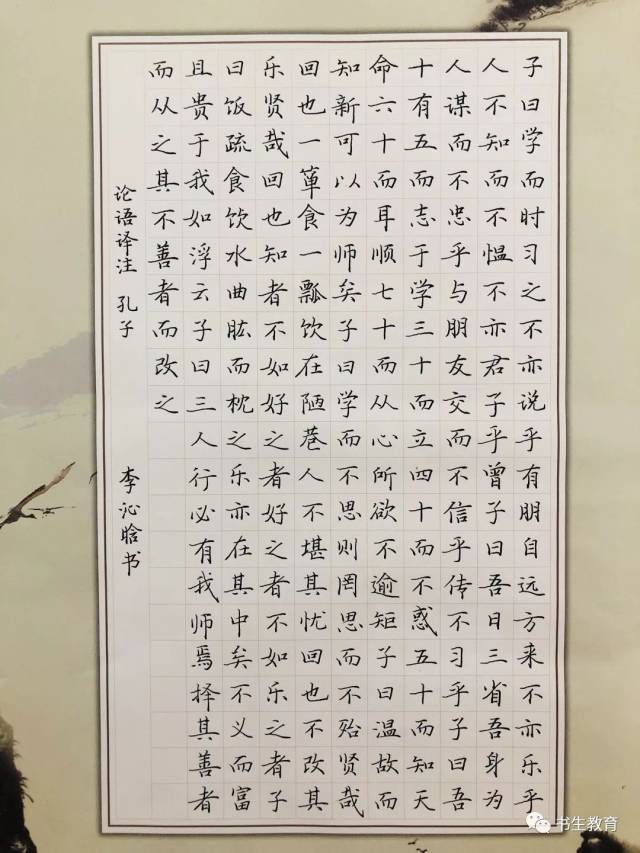 子曰学而时习之不亦说乎有朋自远方来不亦乐乎
人不知而不愠不亦君子乎曾子曰吾日三省吾身为
人谋而不忠乎与朋友交而不信乎传不习乎子曰吾
十有五而志于学三十而立四十而不惑五十而知天
命六十而耳顺七十而从心所欲不逾矩子曰温故而
知新可以为师矣子曰学而不思则罔思而不殆贤哉
回也一箪食一瓢饮在陋巷人不堪其忧回也不改其
乐贤哉回也知者不如好之者好之者不如乐之者子
曰饭疏食饮水曲肱而枕之乐亦在其中矣不义而富
且贵于我如浮云子曰三人行必有我师焉择其善者
而从之其不善者而改之
论语译注 孔子 李沁晗书
书生教育